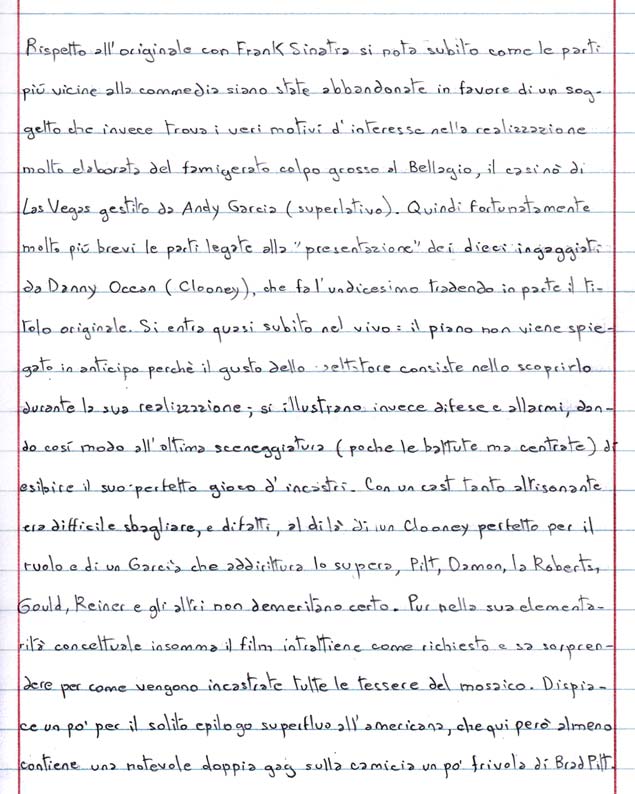 Rispetto all'originale con Frank Sinatra si nota subito come le parti
più vicine alla commedia siano state abbandonate in favore di un sog-
getto che invece trova i veri motivi d'interesse nella realizzazione
molto elaborata del famigerato colpo grosso al Bellagio, il casinò di
Las Vegas gestito da Andy Garcia (superlativo). Quindi fortunatamente
molto più brevi le parti legate alla "presentazione" dei dieci ingaggiati
da Danny Ocean (Clooney), che fa l'undicesimo tradendo in parte il ti-
tolo originale. Si entra quasi subito nel vivo: il piano non viene spie-
gato in anticipo perchè il gusto dello spettatore consiste nello scoprirlo
durante la sua realizzazione; si illustrano invece difese e allarmi, dan-
do così modo all'ottima sceneggiatura (poche le battute ma centrate) di
esibire il suo perfetto gioco d'incastri. Con un cast tanto altisonante
era difficile sbagliare, e difatti, al di là di un Clooney perfetto per il
ruolo e di un Garcia che addirittura lo supera, Pitt, Damon, la Roberts,
Gould, Reiner e gli altri non demeritano certo. Pur nella sua elementa-
rità concettuale insomma il film intrattiene come richiesto e sa sorpren-
dere per come vengono incastrate tutte le tessere del mosaico. Dispia-
ce un po' per il solito epilogo superfluo all'americana, che qui però almeno
contiene una notevole doppia gag sulla camicia un po' frivola di Brad Pitt.